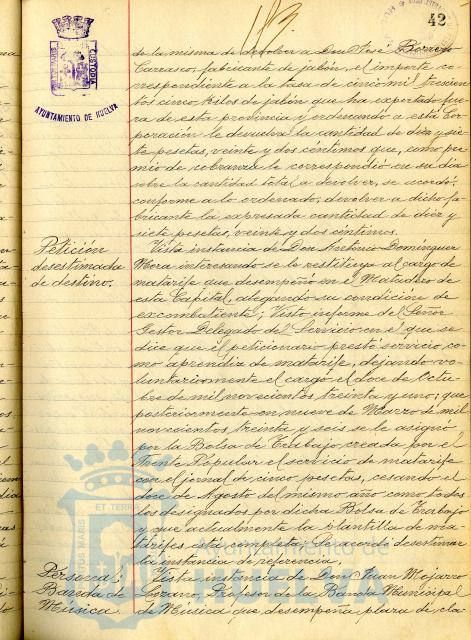 42
CUSTODIA
AYUNTAMIENTO DE HUELVA
de la misma de devolver a Don José Borrego
Carrasco, fabricante de jabón, el importe co-
rrespondiente a la tasa de cinco mil trescien
tos cinco kilos de jabón que ha exportado fue
ra de esta provincia y ordenando a esta Cor-
poración le devuelva la cantidad de diez y sie
te pesetas, veinte y dos céntimos que, como pre
mio de cobranza le correspondió en su día
sobre la cantidad total a devolver, se acordó,
conforme a lo ordenado, devolver a dicho fa-
bricante la expresada cantidad de diez y
siete pesetas, veinte y dos céntimos.
Petición
desestimada
de destino.
Vista instancia de Don Antonio Domínguez
Mora interesando se le restituya al cargo de
matarife que desempeñó en el Matadero de
esta Capital, alegando su condición de
excombatiente; Visto informe del Señor
Gestor Delegado del Servicio en el que se
dice que el peticionario prestó servicio, co-
mo aprendiz de matarife, dejando vo-
luntariamente el cargo el doce de Octu-
bre de mil novecientos treinta y uno; que
posteriormente en nueve de Marzo de mil
novecientos treinta y seis se le asignó
por la Bolsa de Trabajo creada por el
Frente Popular el servicio de matarife
con el jornal de cinco pesetas, cesando el
doce de Agosto del mismo año como todos
los designados por dicha Bolsa de Trabajo
y que actualmente la plantilla de ma-
tarifes está completa, Se acordó desestimar
la instancia de referencia.
Personal
Banda de
Música
Vista instancia de Don Juan Mojarro
Lozano, Profesor de la Banda Municipal
de Música que desempeña plaza de cla
ET TERRAE
Ayuntamiento de